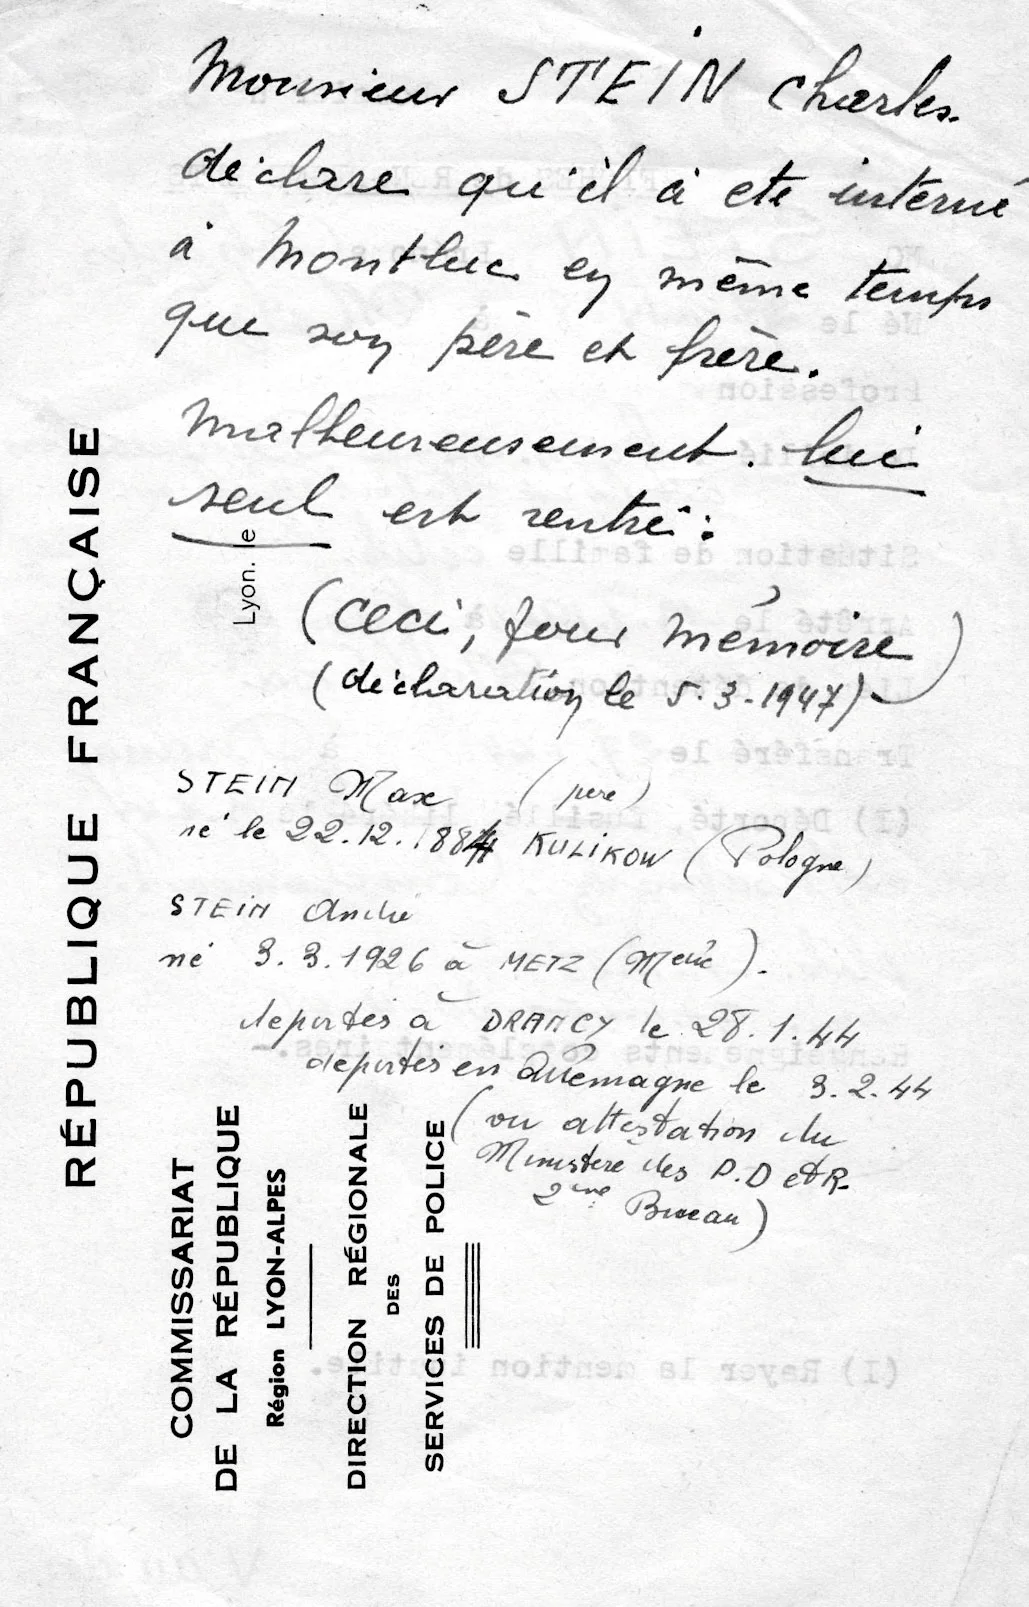 Monsieur STEIN Charles.
déclare qu'il à été interné
à Montluc en même temps
que son père et frère.
Malheureusement. lui
seul est rentré :
(Ceci, pour mémoire)
(déclaration le 5.3-1947)
STEIN Max (père)
né le 22.12.1884 KULIKOW (Pologne)
STEIN André
né 3.3.1926 à METZ (Melle).
deportés à DRANCY le 28.1.44
deportés en Allemagne le 3.2.44
(vu attestation du
Ministère des P.D et R.
2ème Bureau)
RÉPUBLIQUE FRANÇAISE
Lyon. le
COMMISSARIAT
DE LA RÉPUBLIQUE
Région LYON-ALPES
DIRECTION RÉGIONALE
DES
SERVICES DE POLICE
NO
Né le à
Profession
Situation de famille
Arrêté le à
Transféré le à
(I) Déporté, fusillé,
(I) Rayer la mention inutile.